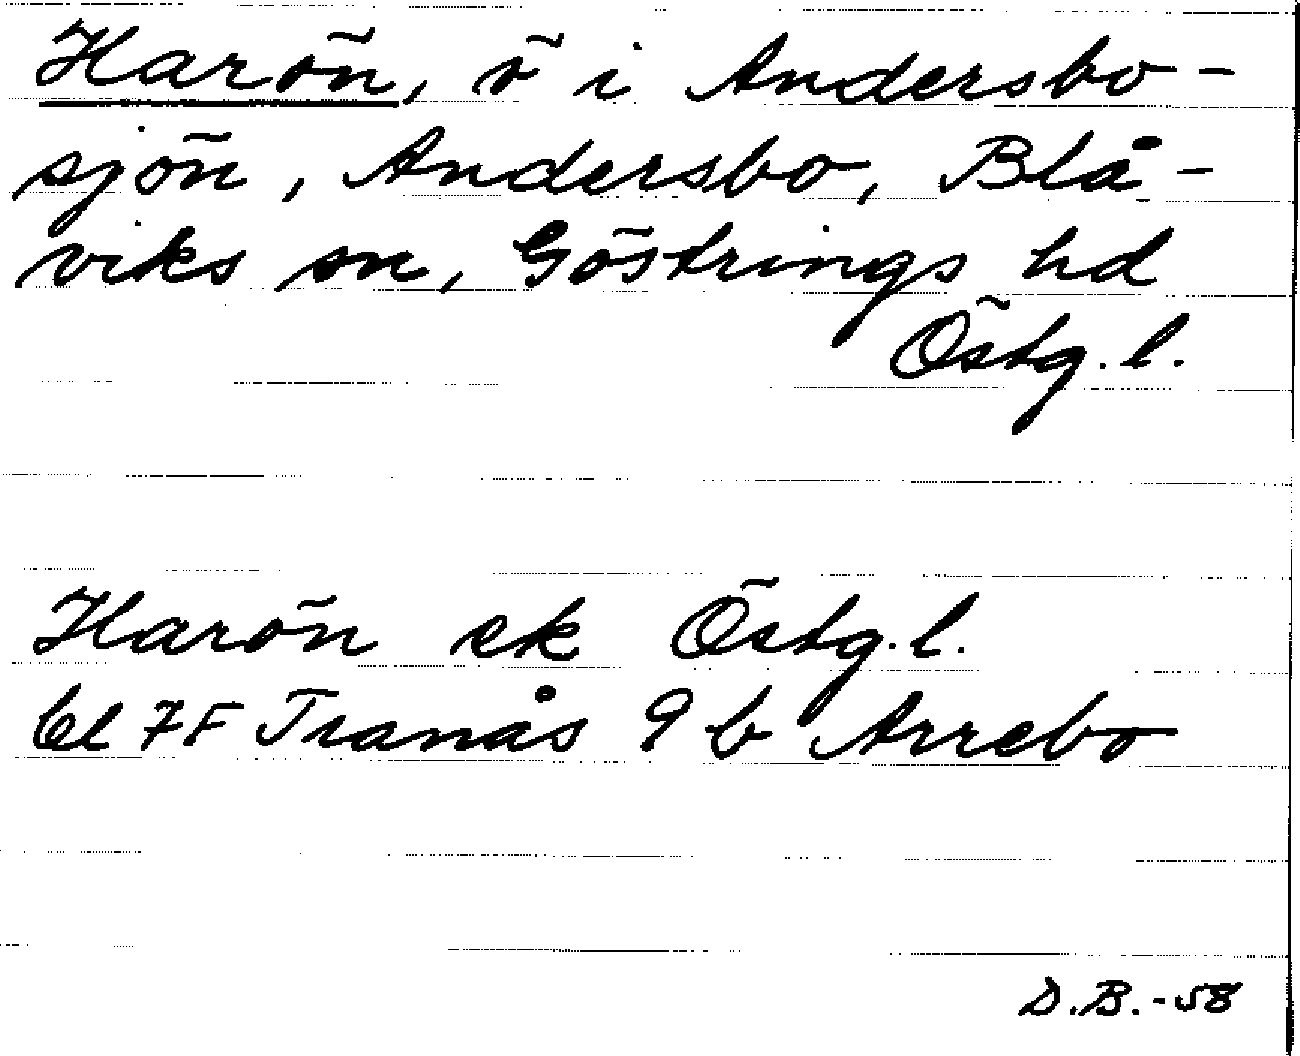 Harön, ö i Andersbo-
sjön, Andersbo, Blå-
viks sn, Göstrings hd
Östg. l.
Harön ek Östg. l.
bl 7F Tranås 9 b Arrebo
D.B.-58